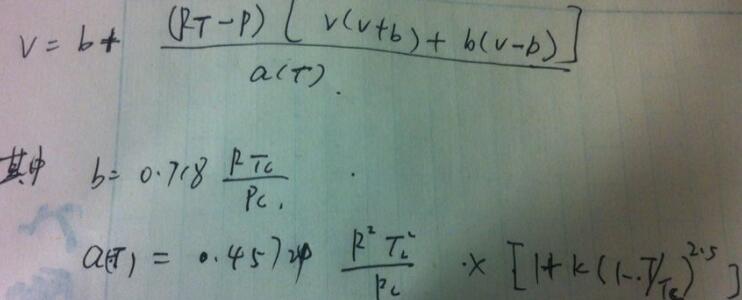 V = b + (RT-P) [ V(V+b) + b(V-b) ] / a(T).
其中 b = 0.718 RTc / Pc.
a(T) = 0.45724 R² Tc² / Pc · × [1 + k (1-T/Tc)^2.5]